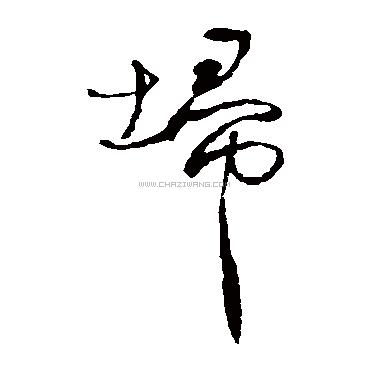 埽
WWW.CHAZIWANG.COM